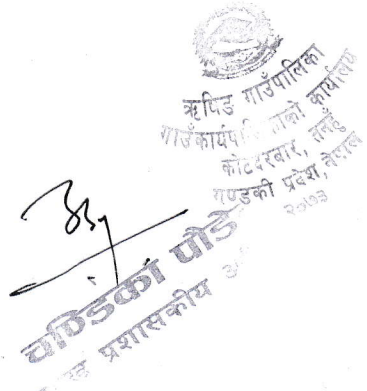 ऋषिङ गाउँपालिका
गाउँकार्यपालिकाको कार्यालय
कोटदरबार, तनहुँ
गण्डकी प्रदेश, नेपाल
२०७३
चण्डिका पौडे
प्रशासकीय